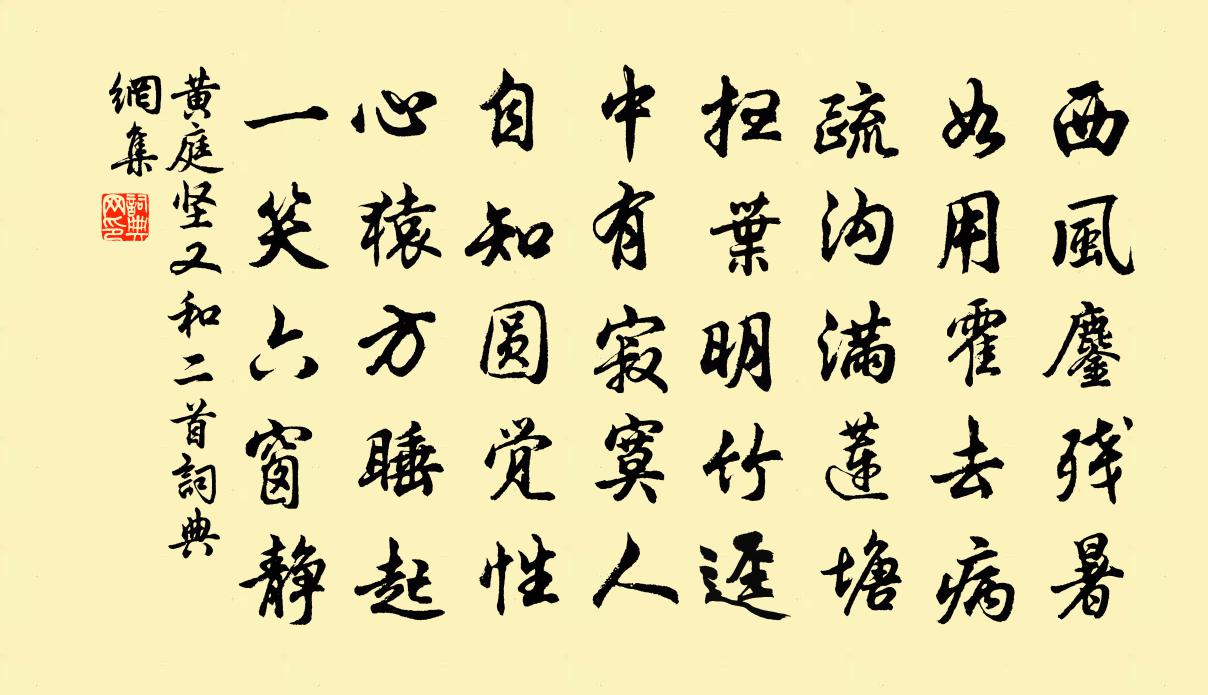 西風鏖残暑
如用霍去病
疏沟满蓮塘
扫葉明竹逕
中有寂寞人
自知圆觉性
心猿方睡起
一笑六窗静
黄庭坚又和二首詞典
網集
詞典网印